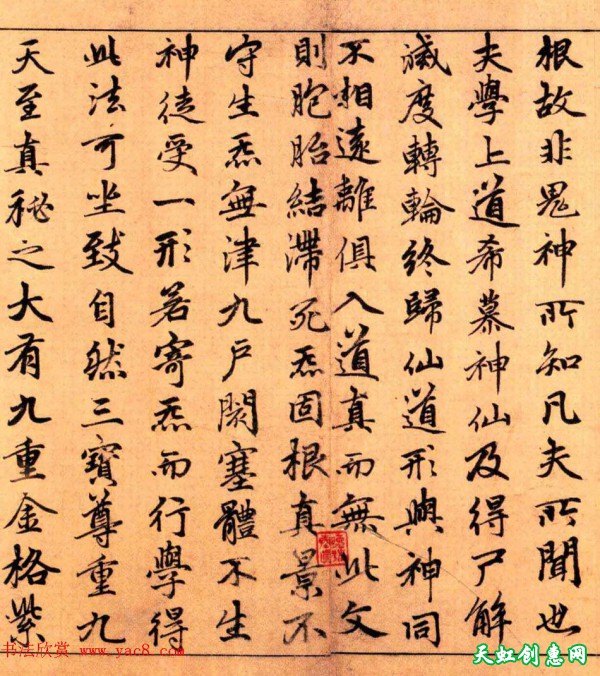 根故非鬼神所知凡夫所聞也
夫學上道希慕神仙及得尸解
滅度轉輪終歸仙道形與神同
不相遠離俱入道真而無此文
則胞胎結滯死炁固根真景不
守生炁無津九戶閡塞體不生
神徒受一形若寄炁而行學得
此法可坐致自然三寶尊重九
天至真秘之大有九重金格紫
书法欣赏 www.yac8.com
天虹创意网